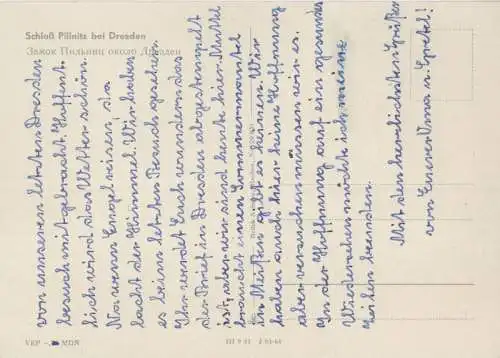 Schloß Pillnitz bei Dresden
Замок Пильниц около Дрездена
von unserem letzten Dresden
besuch mitgebracht. Hoffent-
lich wird das Wetter schön.
Na wenn Engel reisen, da
lacht der Himmel. Wir haben
es beim letzten Besuch gesehen.
Ihr werdet Euch wundern das
der Brief in Dresden abgestempelt
ist, aber wir sind heut hier. Mutti
braucht einen Sommermantel
in Meißen gibt es keinen. Wir
haben auch hier keine Hoffnung
aber versuchen müssen wir es.
In der Hoffnung auf ein gesundes
Wiedersehn möchte ich meine
Zeilen beenden.
Mit den herzlichsten Grüßen
von Eurer Oma u. Gretel!
VKP MDN
III 9 51